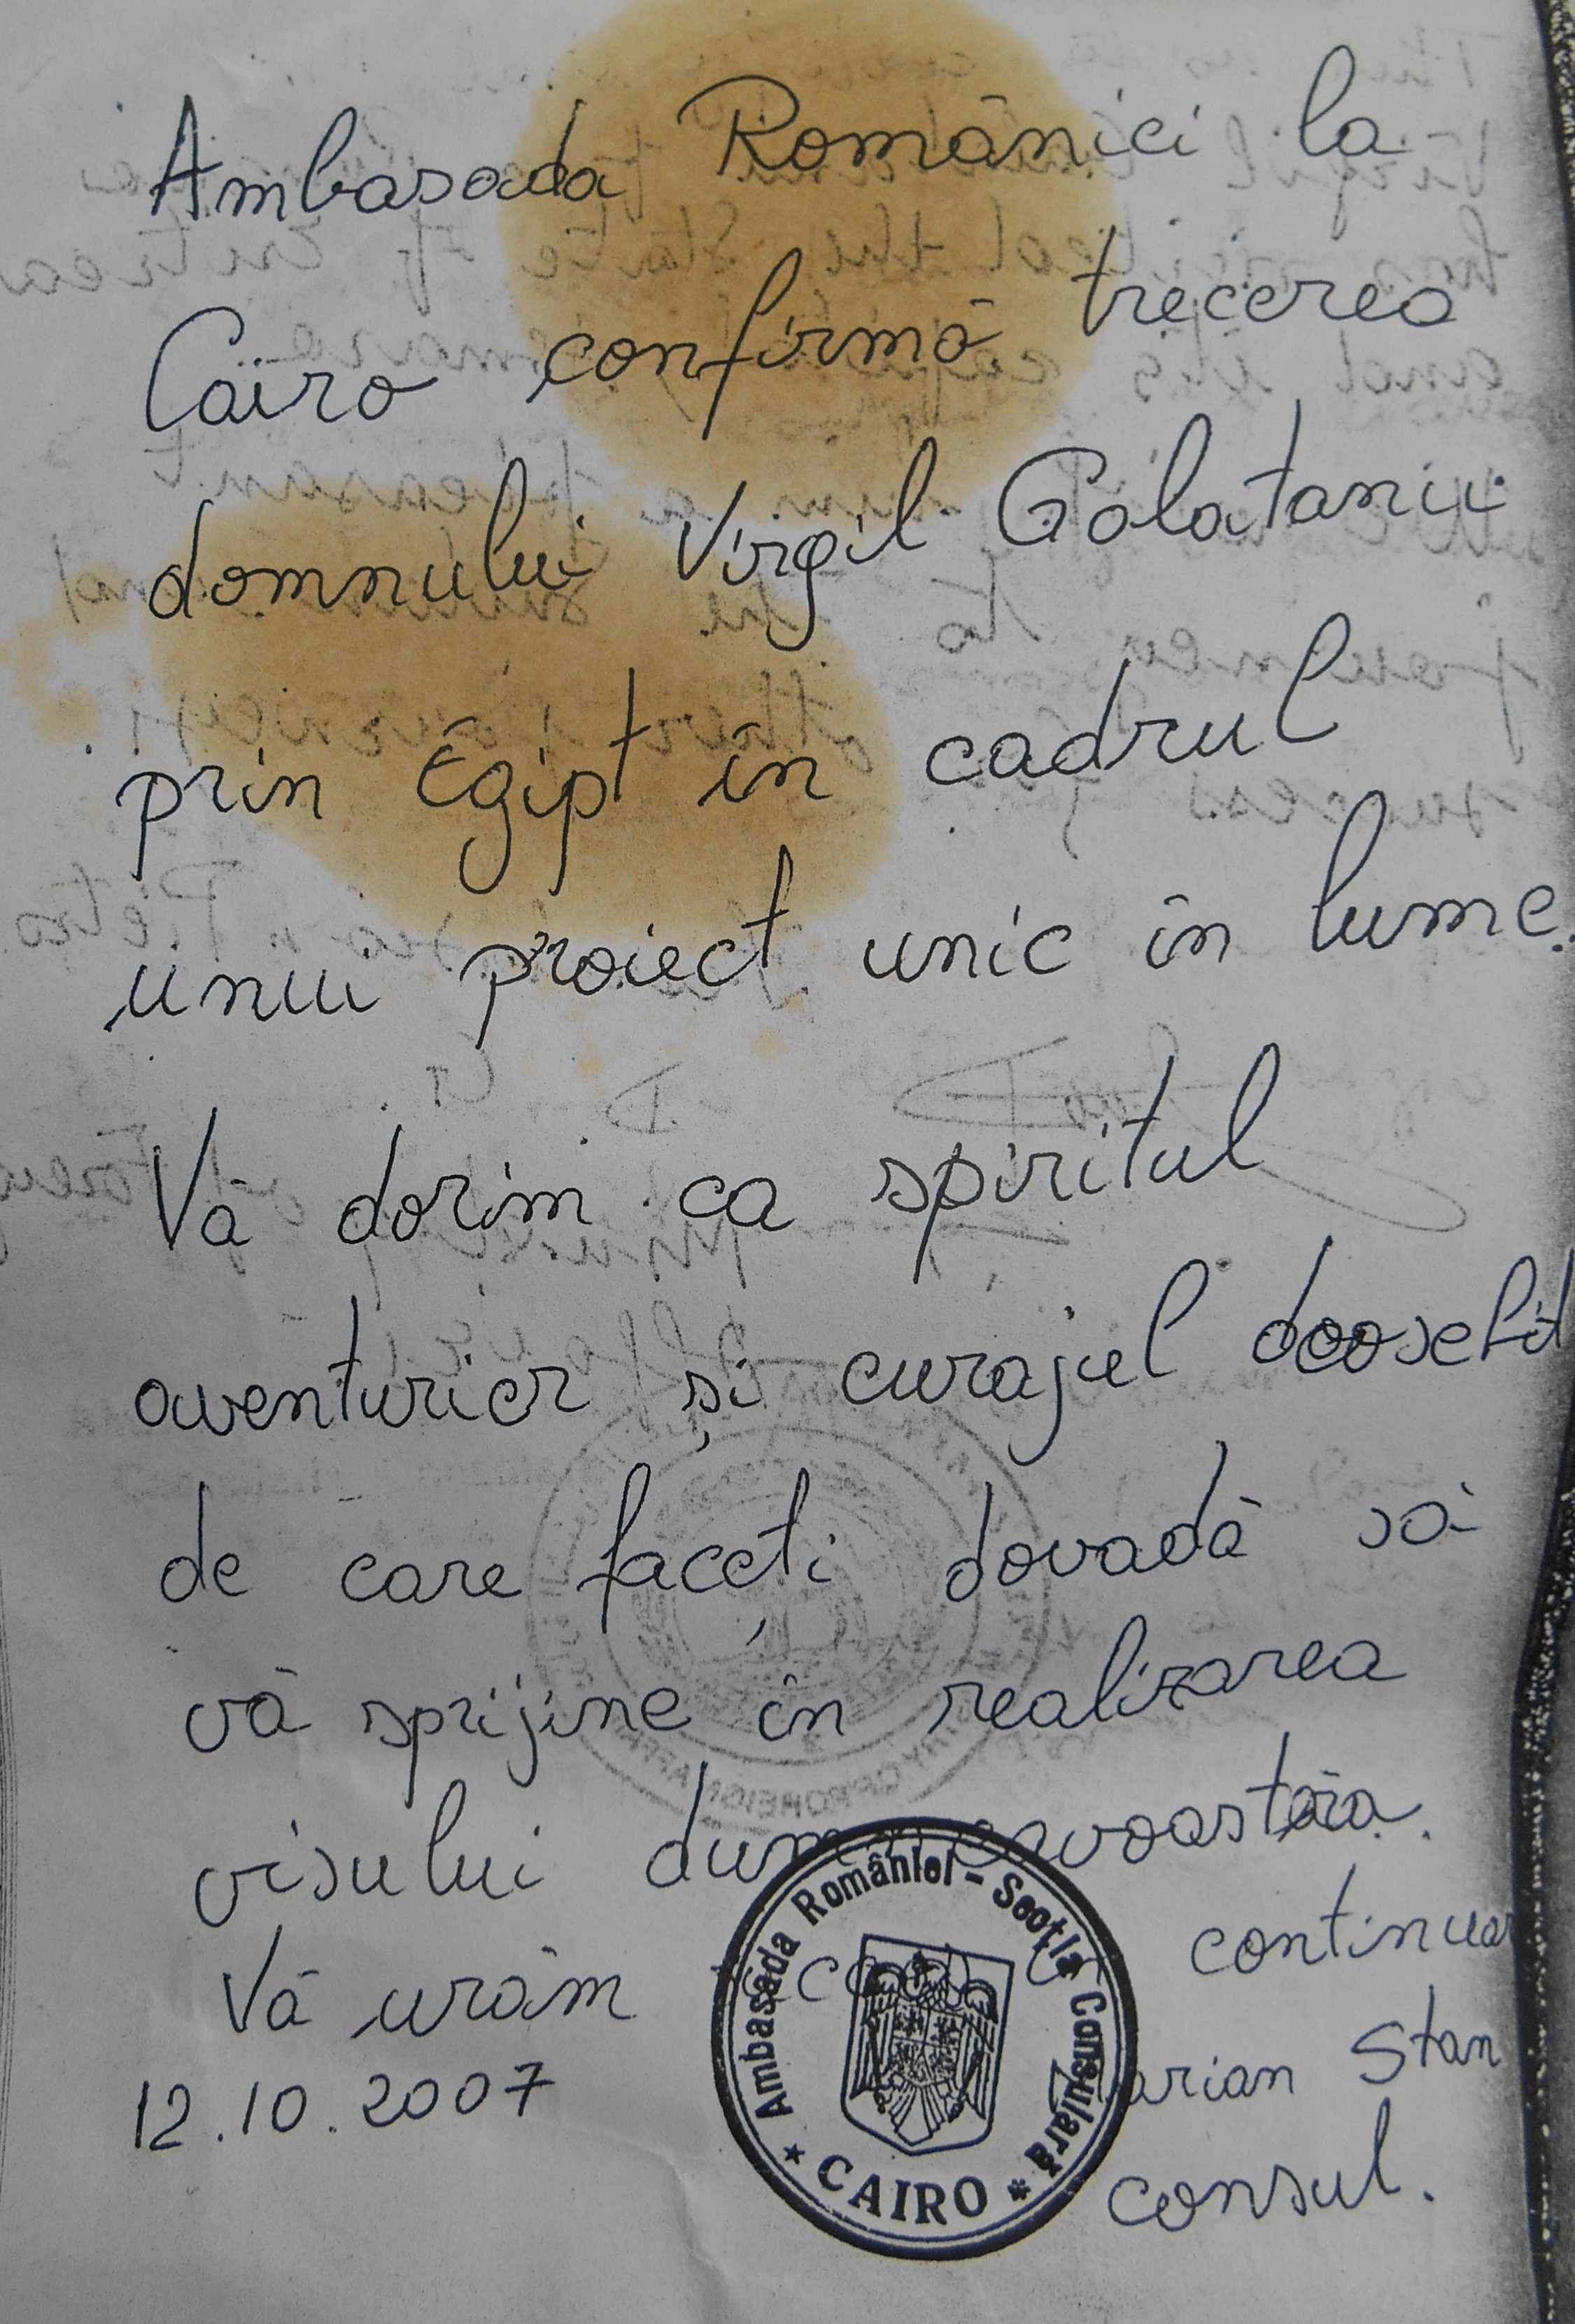 Ambasada României la
Cairo confirmă trecerea
domnului Virgil Gălătanu
prin Egipt în cadrul
unui proiect unic în lume.
Vă dorim ca spiritul
aventurier și curajul deosebit
de care faceți dovadă să
vă sprijine în realizarea
visului dumneavoastră.
Vă urăm continuar
12.10.2007 Marian Stan
consul.
Ambasada României - Secția Consulară
* CAIRO *